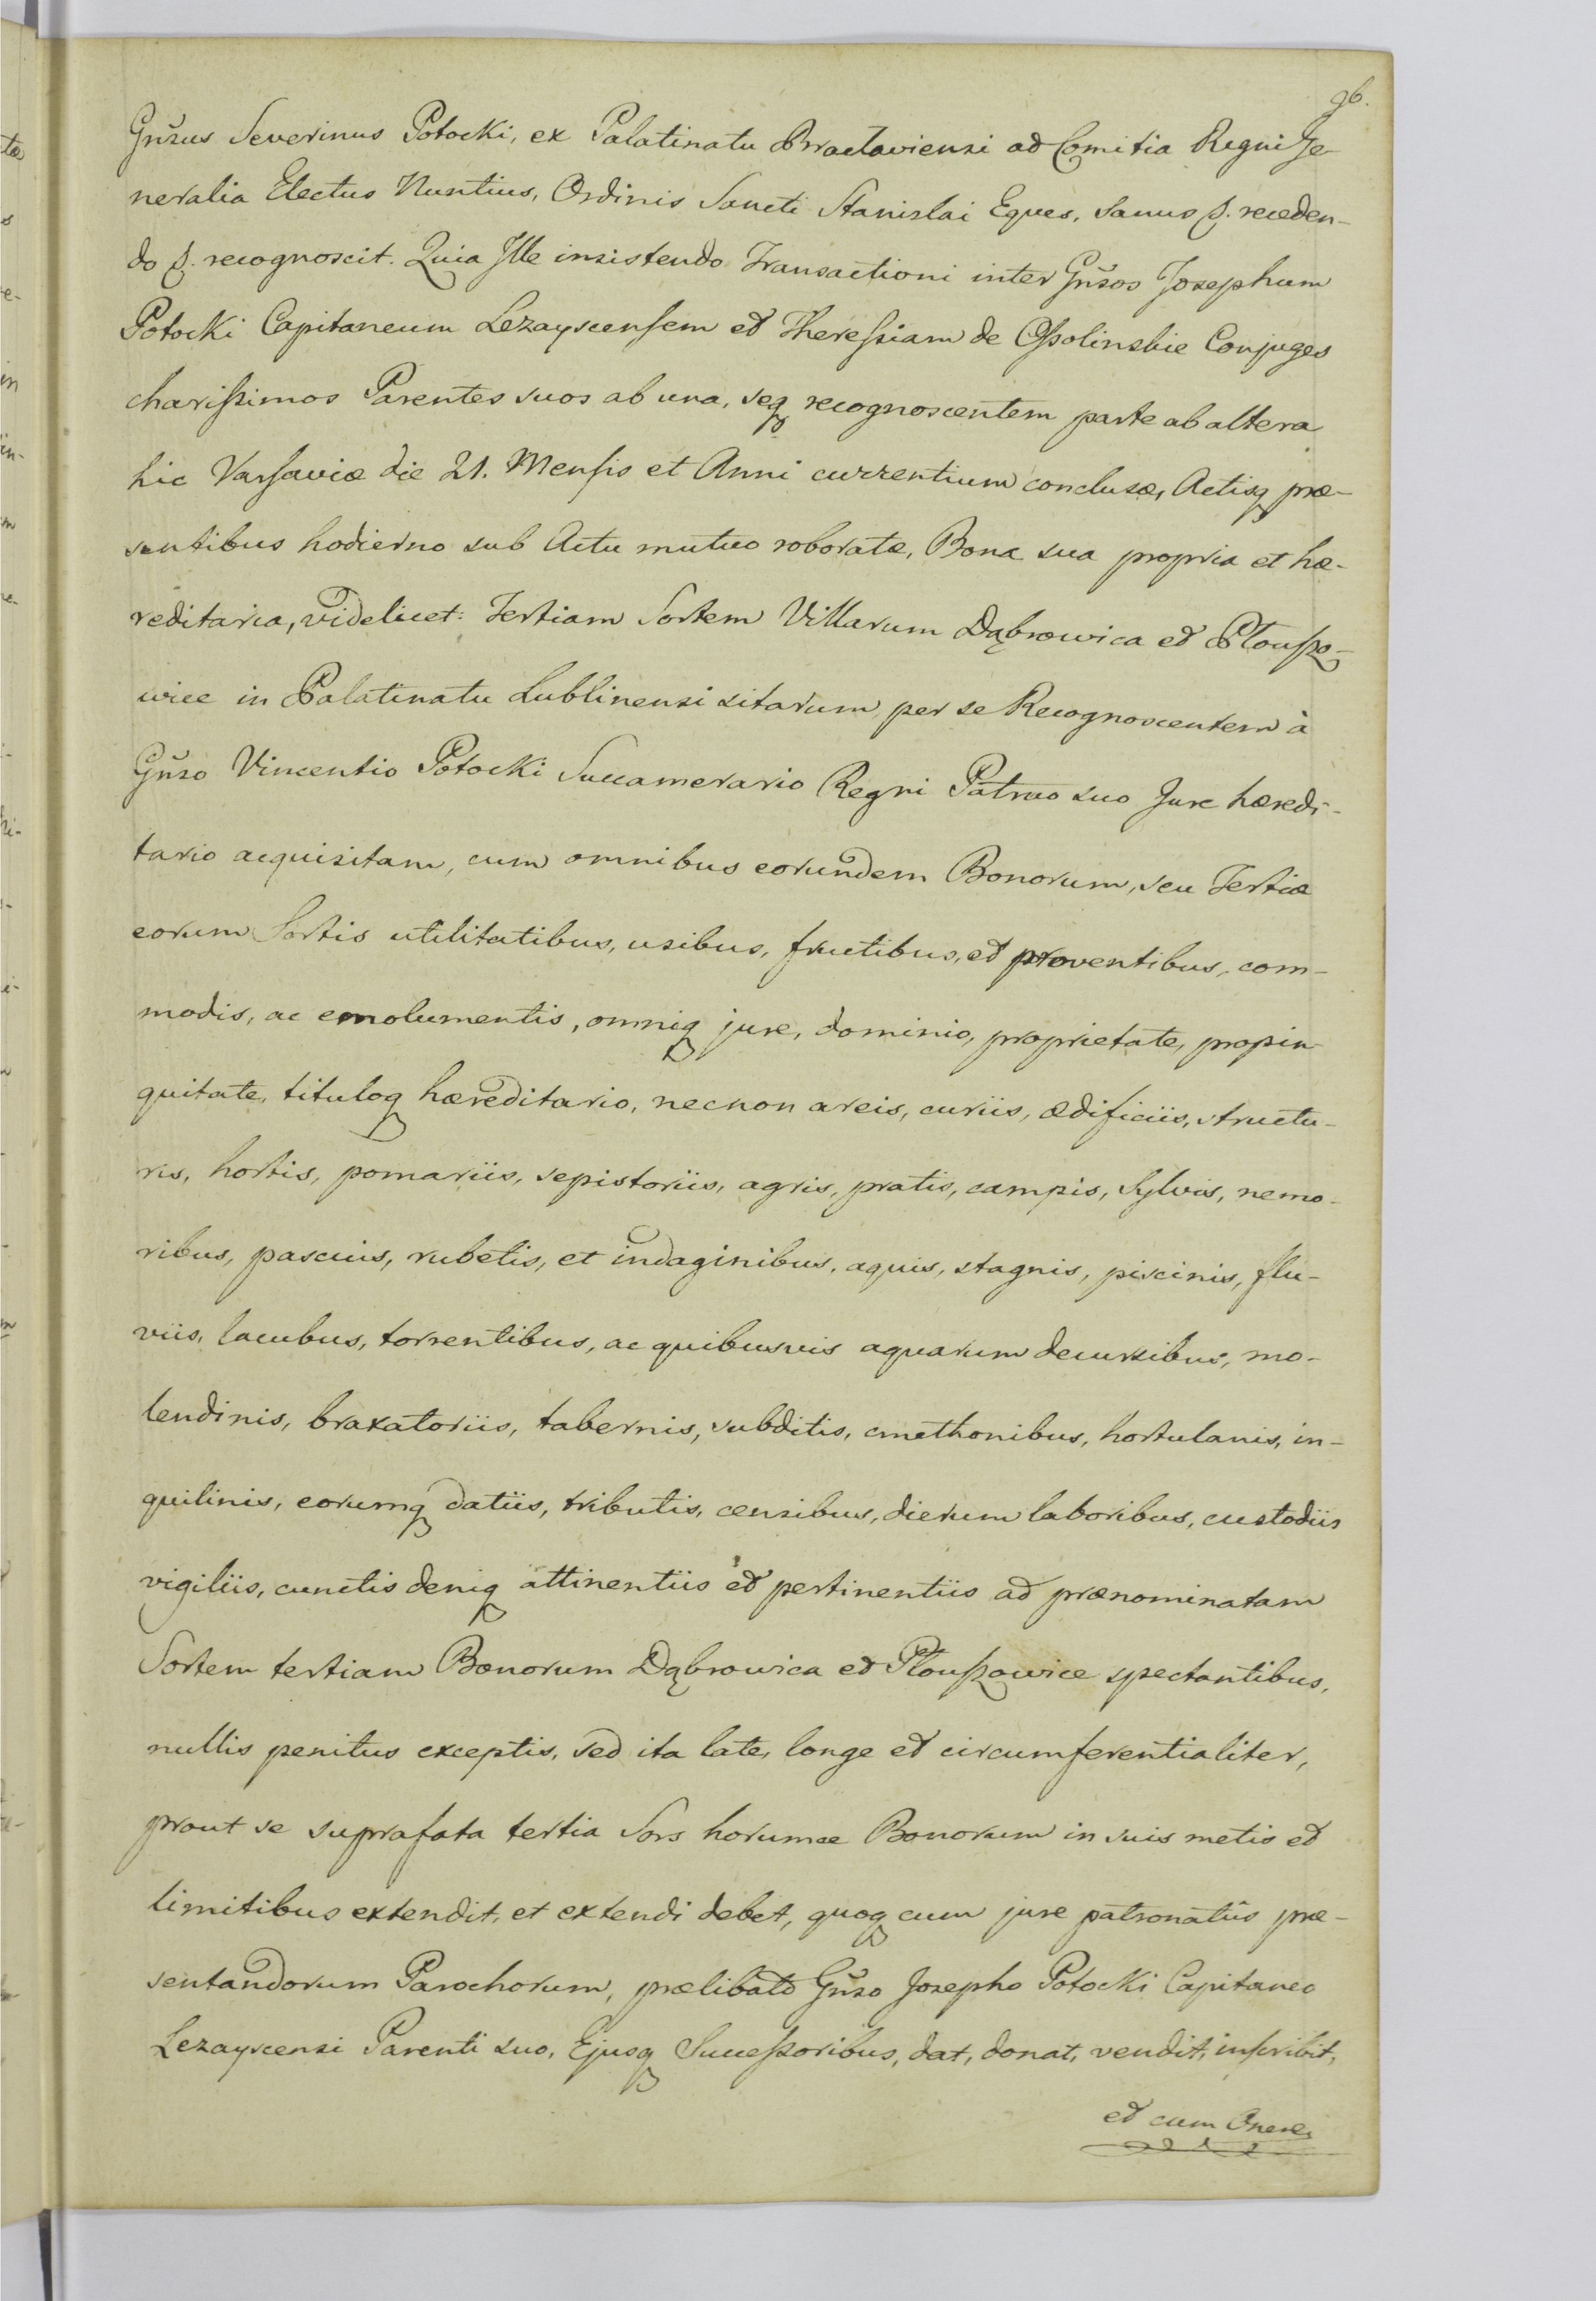 96.
Gnũsus Severinus Potocki, ex Palatinatu Braclaviensi ad Comitia Regni Ge-
neralia Electus Nuntius, Ordinis Sancti Stanislai Eques, sanus p. receden-
do p. recognoscit. Quia Ille insistendo Transactioni inter Gnũsos Josephum
Potocki Capitaneum Lezayscensem et Theressiam de Ossolinskie Conjuges
charissimos Parentes suos ab una, seq recognoscentem parte ab altera
hic Varsaviæ die 21. Mensis et Anni currentium conclusæ, Actisq præ-
sentibus hodierno sub Actu mutuo roboratæ, Bona sua propria et hæ-
reditaria, videlicet: Tertiam Sortem Villarum Dąbrowica et Płouszo-
wice in Palatinatu Lublinensi sitarum, per se Recognoscentem à
Gnũso Vincentio Potocki Succamerario Regni Patruo suo Jure hæredi-
tario acquisitam, cum omnibus eorundem Bonorum, seu Tertiæ
eorum Sortis utilitatibus, usibus, fructibus, et proventibus, com-
modis, ac emolumentis, omniq jure, dominio, proprietate, propin-
quitate, tituloq hæreditario, necnon areis, curiis, ædificiis, structu-
ris, hortis, pomariis, sepistoriis, agris, pratis, campis, Sylvis, nemo-
ribus, pascuis, rubetis, et indaginibus, aquis, stagnis, piscinis, flu-
viis, lacubus, torrentibus, ac quibusvis aquarum decursibus, mo-
lendinis, braxatoriis, tabernis, subditis, cmethonibus, hortulanis, in-
quilinis, eorumq datiis, tributis, censibus, dierum laboribus, custodiis
vigiliis, cunctis deniq attinentiis et pertinentiis ad prænominatam
Sortem tertiam Bonorum Dąbrowica et Płouszowice spectantibus,
nullis penitus exceptis, sed ita late, longe et circumferentialiter,
prout se suprafata tertia Sors horumce Bonorum in suis metis et
limitibus extendit, et extendi debet, quoq cum jure patronatûs præ-
sentandorum Parochorum, prælibato Gnũso Josepho Potocki Capitaneo
Lezayscensi Parenti suo, Ejusq Successoribus, dat, donat, vendit, inscribit,
et cum Onere